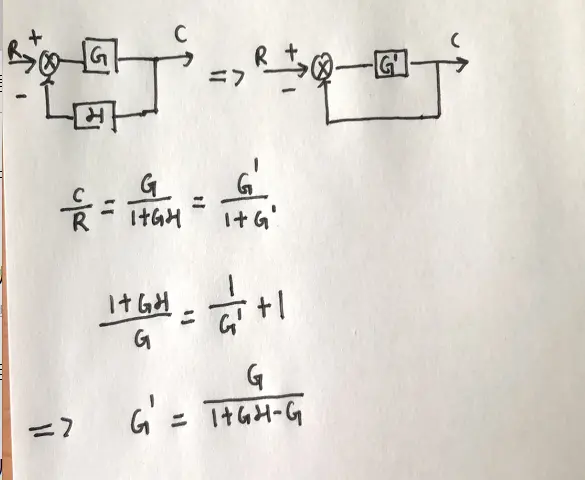 R + - G C H => R + - G' C
C/R = G/1+GH = G'/1+G'
1+GH/G = 1/G' + 1
=> G' = G/1+GH-G